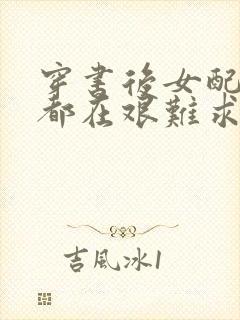 穿書後女配
都在艰難求
吉風冰1